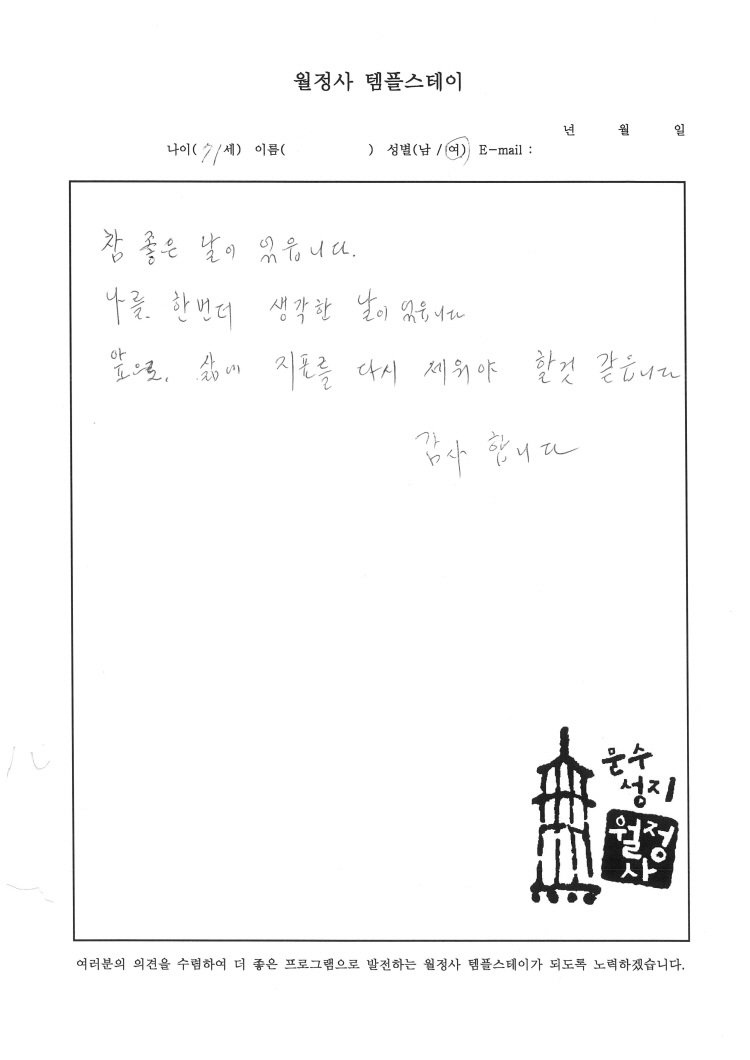 월정사 템플스테이
년 월 일
나이( 71세) 이름( ) 성별(남 / 여) E-mail :
참 좋은 날이 있읍니다.
나를. 한번더 생각한 날이 있읍니다
앞으로. 삶에 지표를 다시 세워야 할것 같읍니다
감사 합니다
문수
성지
월정
사
여러분의 의견을 수렴하여 더 좋은 프로그램으로 발전하는 월정사 템플스테이가 되도록 노력하겠습니다.